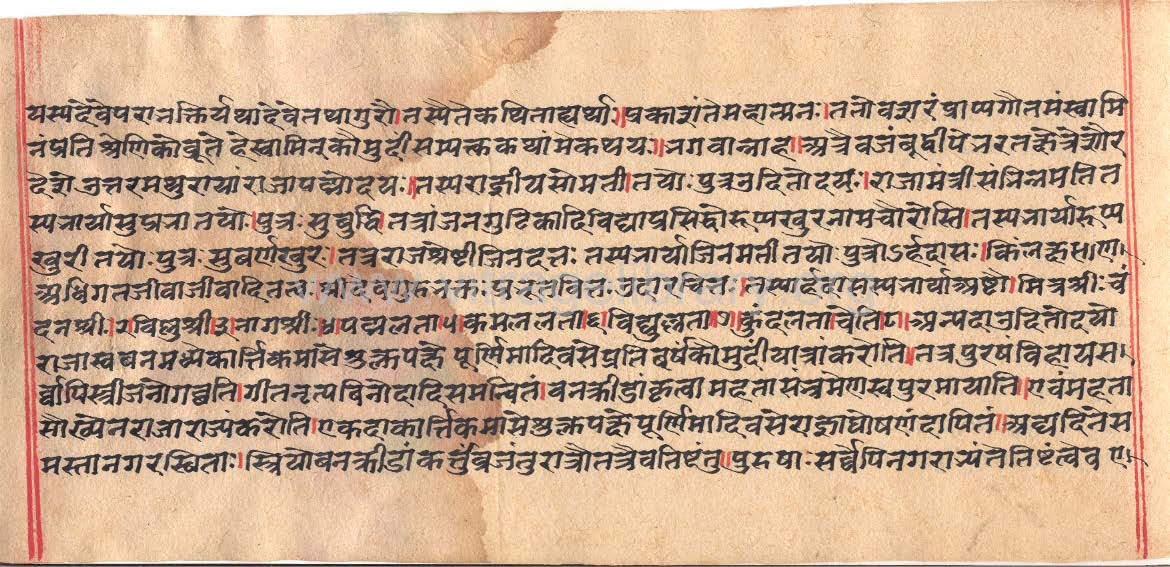 यस्य देवे परा भक्तिर्यथा देवे तथा गुरौ। तस्यैते कथिता ह्यर्थाः प्रकाशंते महात्मनः। ततोवशरं प्राप्य गौतमंस्वामि
नं प्रति श्रेणिको ब्रूते हे स्वामिन् कौमुदीसम्यक्तकथां मे कथय॥ भगवानाह॥ अत्रैव जंबूद्वीपे भरतक्षेत्रे शौर
देशे उत्तरमथुरायां राजा पद्मोदयः। तस्य राज्ञी यसोमती तयोः पुत्र उदितोदयः। राजामंत्री संभिन्नमति त
स्य भार्या सुप्रभा तयोः पुत्रः सुबुद्धि। तत्रांजनगुटिकादिविद्याप्रसिद्धो रूप्यखुरनामचौरोस्ति। तस्य भार्या रूप्य
खुरी तयोः पुत्रः सुवर्णखुरः। तत्र राजश्रेष्टी जिनदत्तः तस्य भार्या जिनमती तयोः पुत्रोऽर्हदासः। किंलक्षणः
अधिगतजीवाजीवादितत्त्व तस्यार्हदासस्य भार्या अष्टौ। मित्रश्री१ चं
दनश्री२ विष्णुश्री३ नागश्री४ पद्मलता५ कमललता६ विद्युल्लता७ कुंदलता चेति८। अन्यदा उदितोदयो
राजा स्वबनमध्ये कार्त्तिकमासे शुक्लपक्षे पूर्णिमादिवसे प्रतिवर्षं कौमुदीयात्रां करोति। तत्र पुरषं विहाय स
र्वापि स्त्रीजनो गच्छति। गीतनृत्यबिनोदादिसमन्वितं। बनक्रीडा कृत्वा महता संभ्रमेण स्वपुरमायाति। एवं महता
सौख्येन राजा राज्यं करोति। एकदा कार्त्तिकमासे शुक्लपक्षे पूर्णिमादिवसे राज्ञा घोषणं दापितं। अद्य दिने स
मस्ता नगरस्थिताः। स्त्रियो बनक्रीडां कर्तुं व्रजंतु रात्रौ तत्रैव तिष्टंतु। पुरुषाः सर्वेपि नगराभ्यंतरे तिष्टंत्वेव